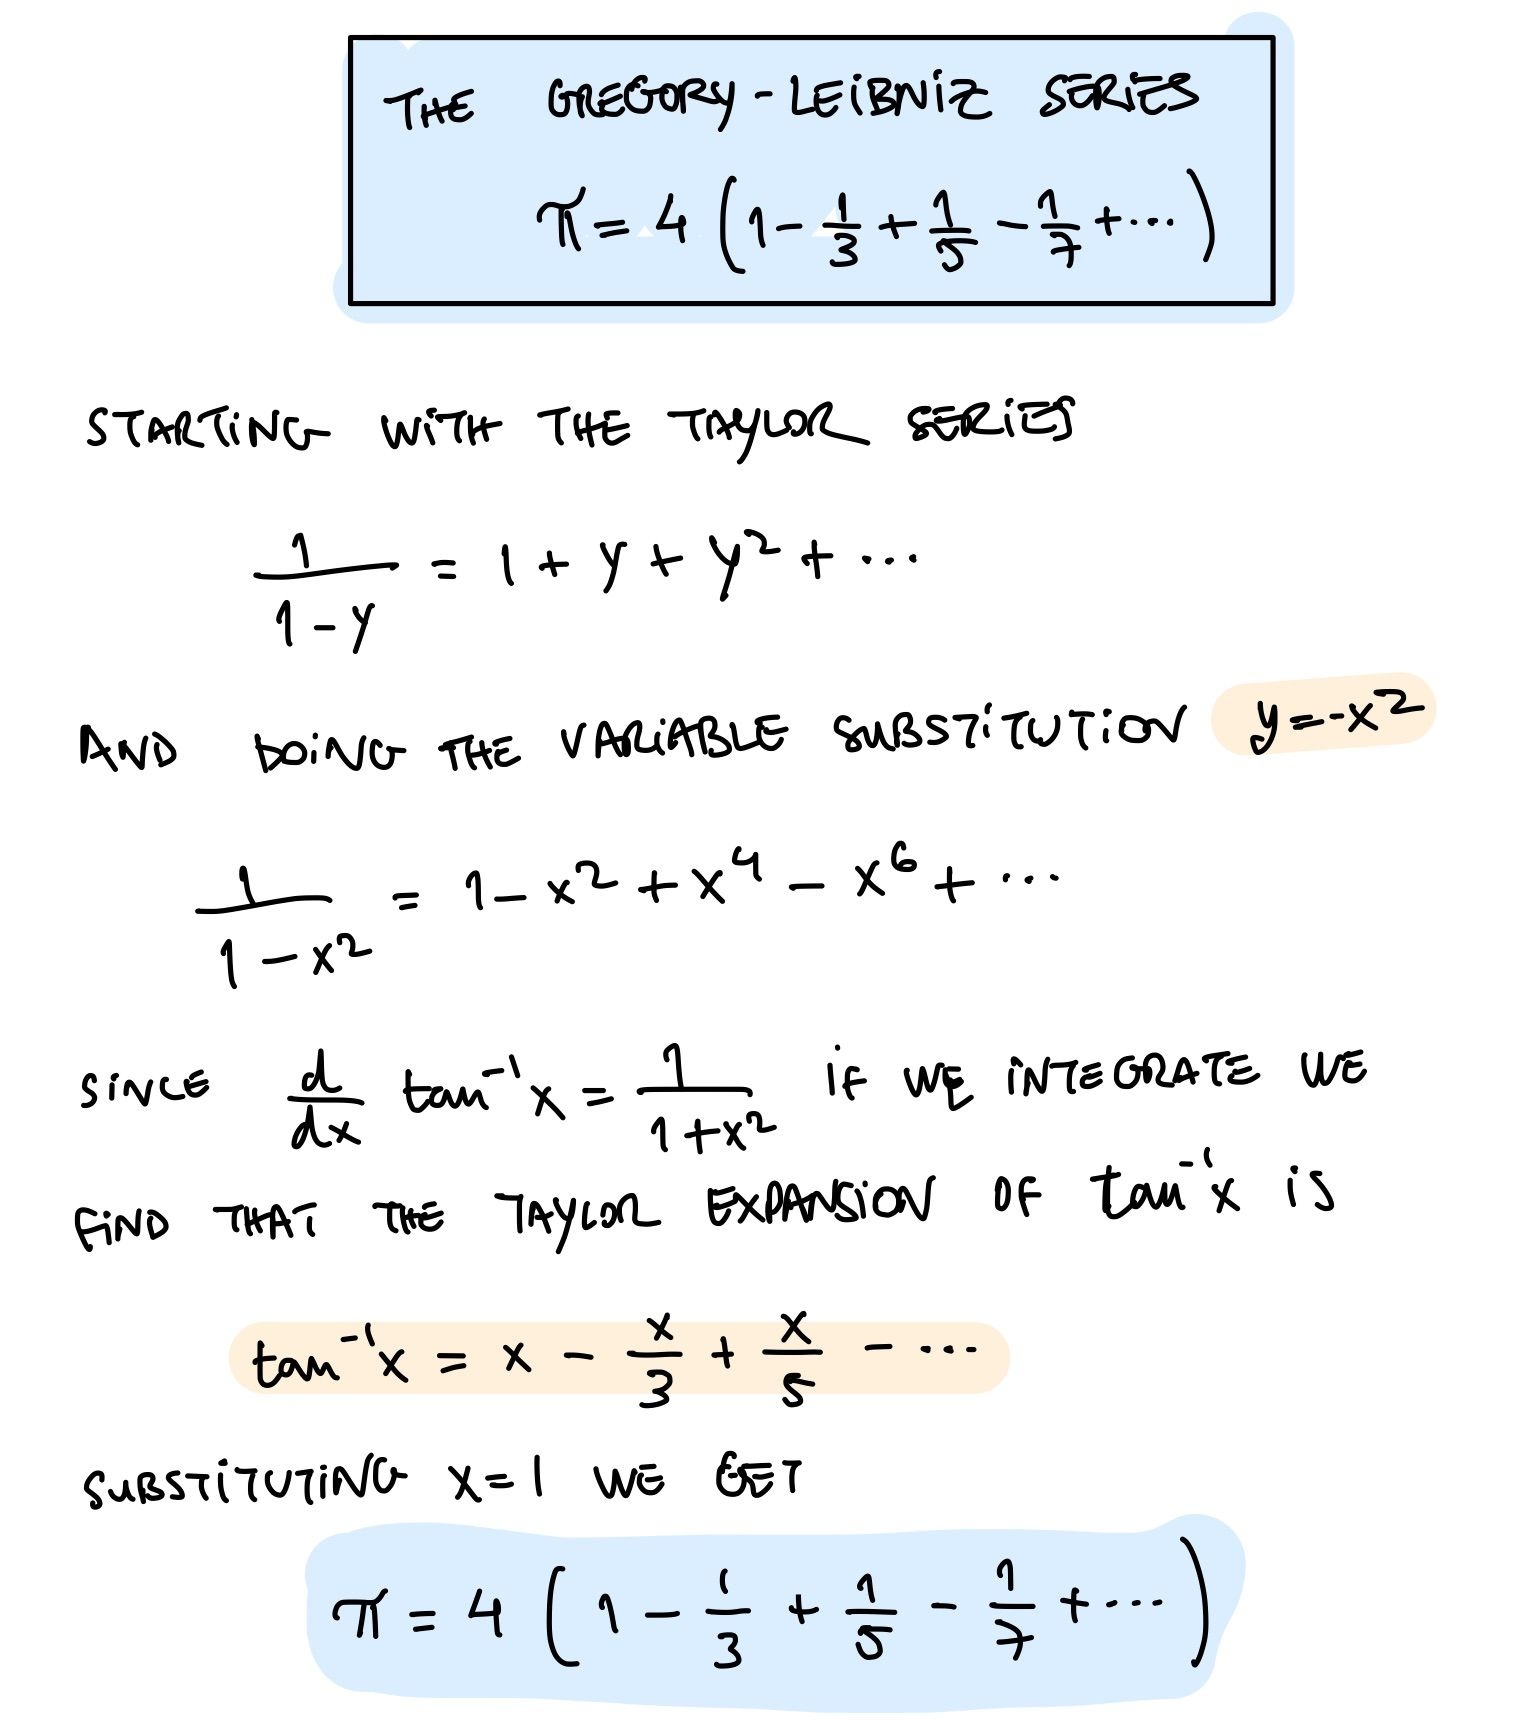 THE GREGORY-LEIBNIZ SERIES
π = 4 (1 - 1/3 + 1/5 - 1/7 + ...)
STARTING WITH THE TAYLOR SERIES
1/(1-y) = 1 + y + y² + ...
AND DOING THE VARIABLE SUBSTITUTION y=-x²
1/(1-x²) = 1 - x² + x⁴ - x⁶ + ...
SINCE d/dx tan⁻¹x = 1/(1+x²) IF WE INTEGRATE WE
FIND THAT THE TAYLOR EXPANSION OF tan⁻¹x IS
tan⁻¹x = x - x/3 + x/5 - ...
SUBSTITUTING x=1 WE GET
π = 4 (1 - 1/3 + 1/5 - 1/7 + ...)